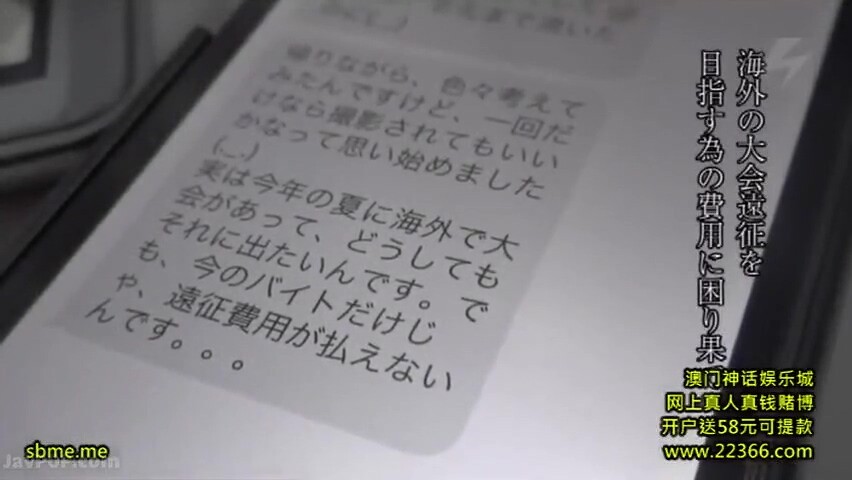 帰りながら、色々考えて
みたんですけど、一回だ
けなら撮影されてもいい
かなって思い始めました
(._.)
実は今年の夏に海外で大
会があって、どうしても
それに出たいんです。で
も、今のバイトだけじ
ゃ、遠征費用が払えない
んです。。。
海外の大会遠征を
目指す為の費用に困り果
澳门神话娱乐城
网上真人真钱赌博
开户送58元可提款
www.22366.com
sbme.me
JavPOP.com